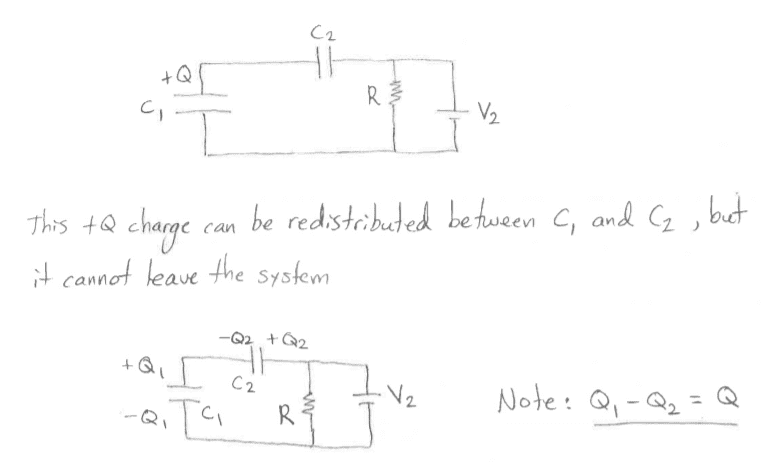 C2
+Q
C1
R
V2
This +Q charge can be redistributed between C1 and C2, but
it cannot leave the system
-Q2 +Q2
+Q1
C2
V2
Note: Q1 - Q2 = Q
-Q1
C1
R